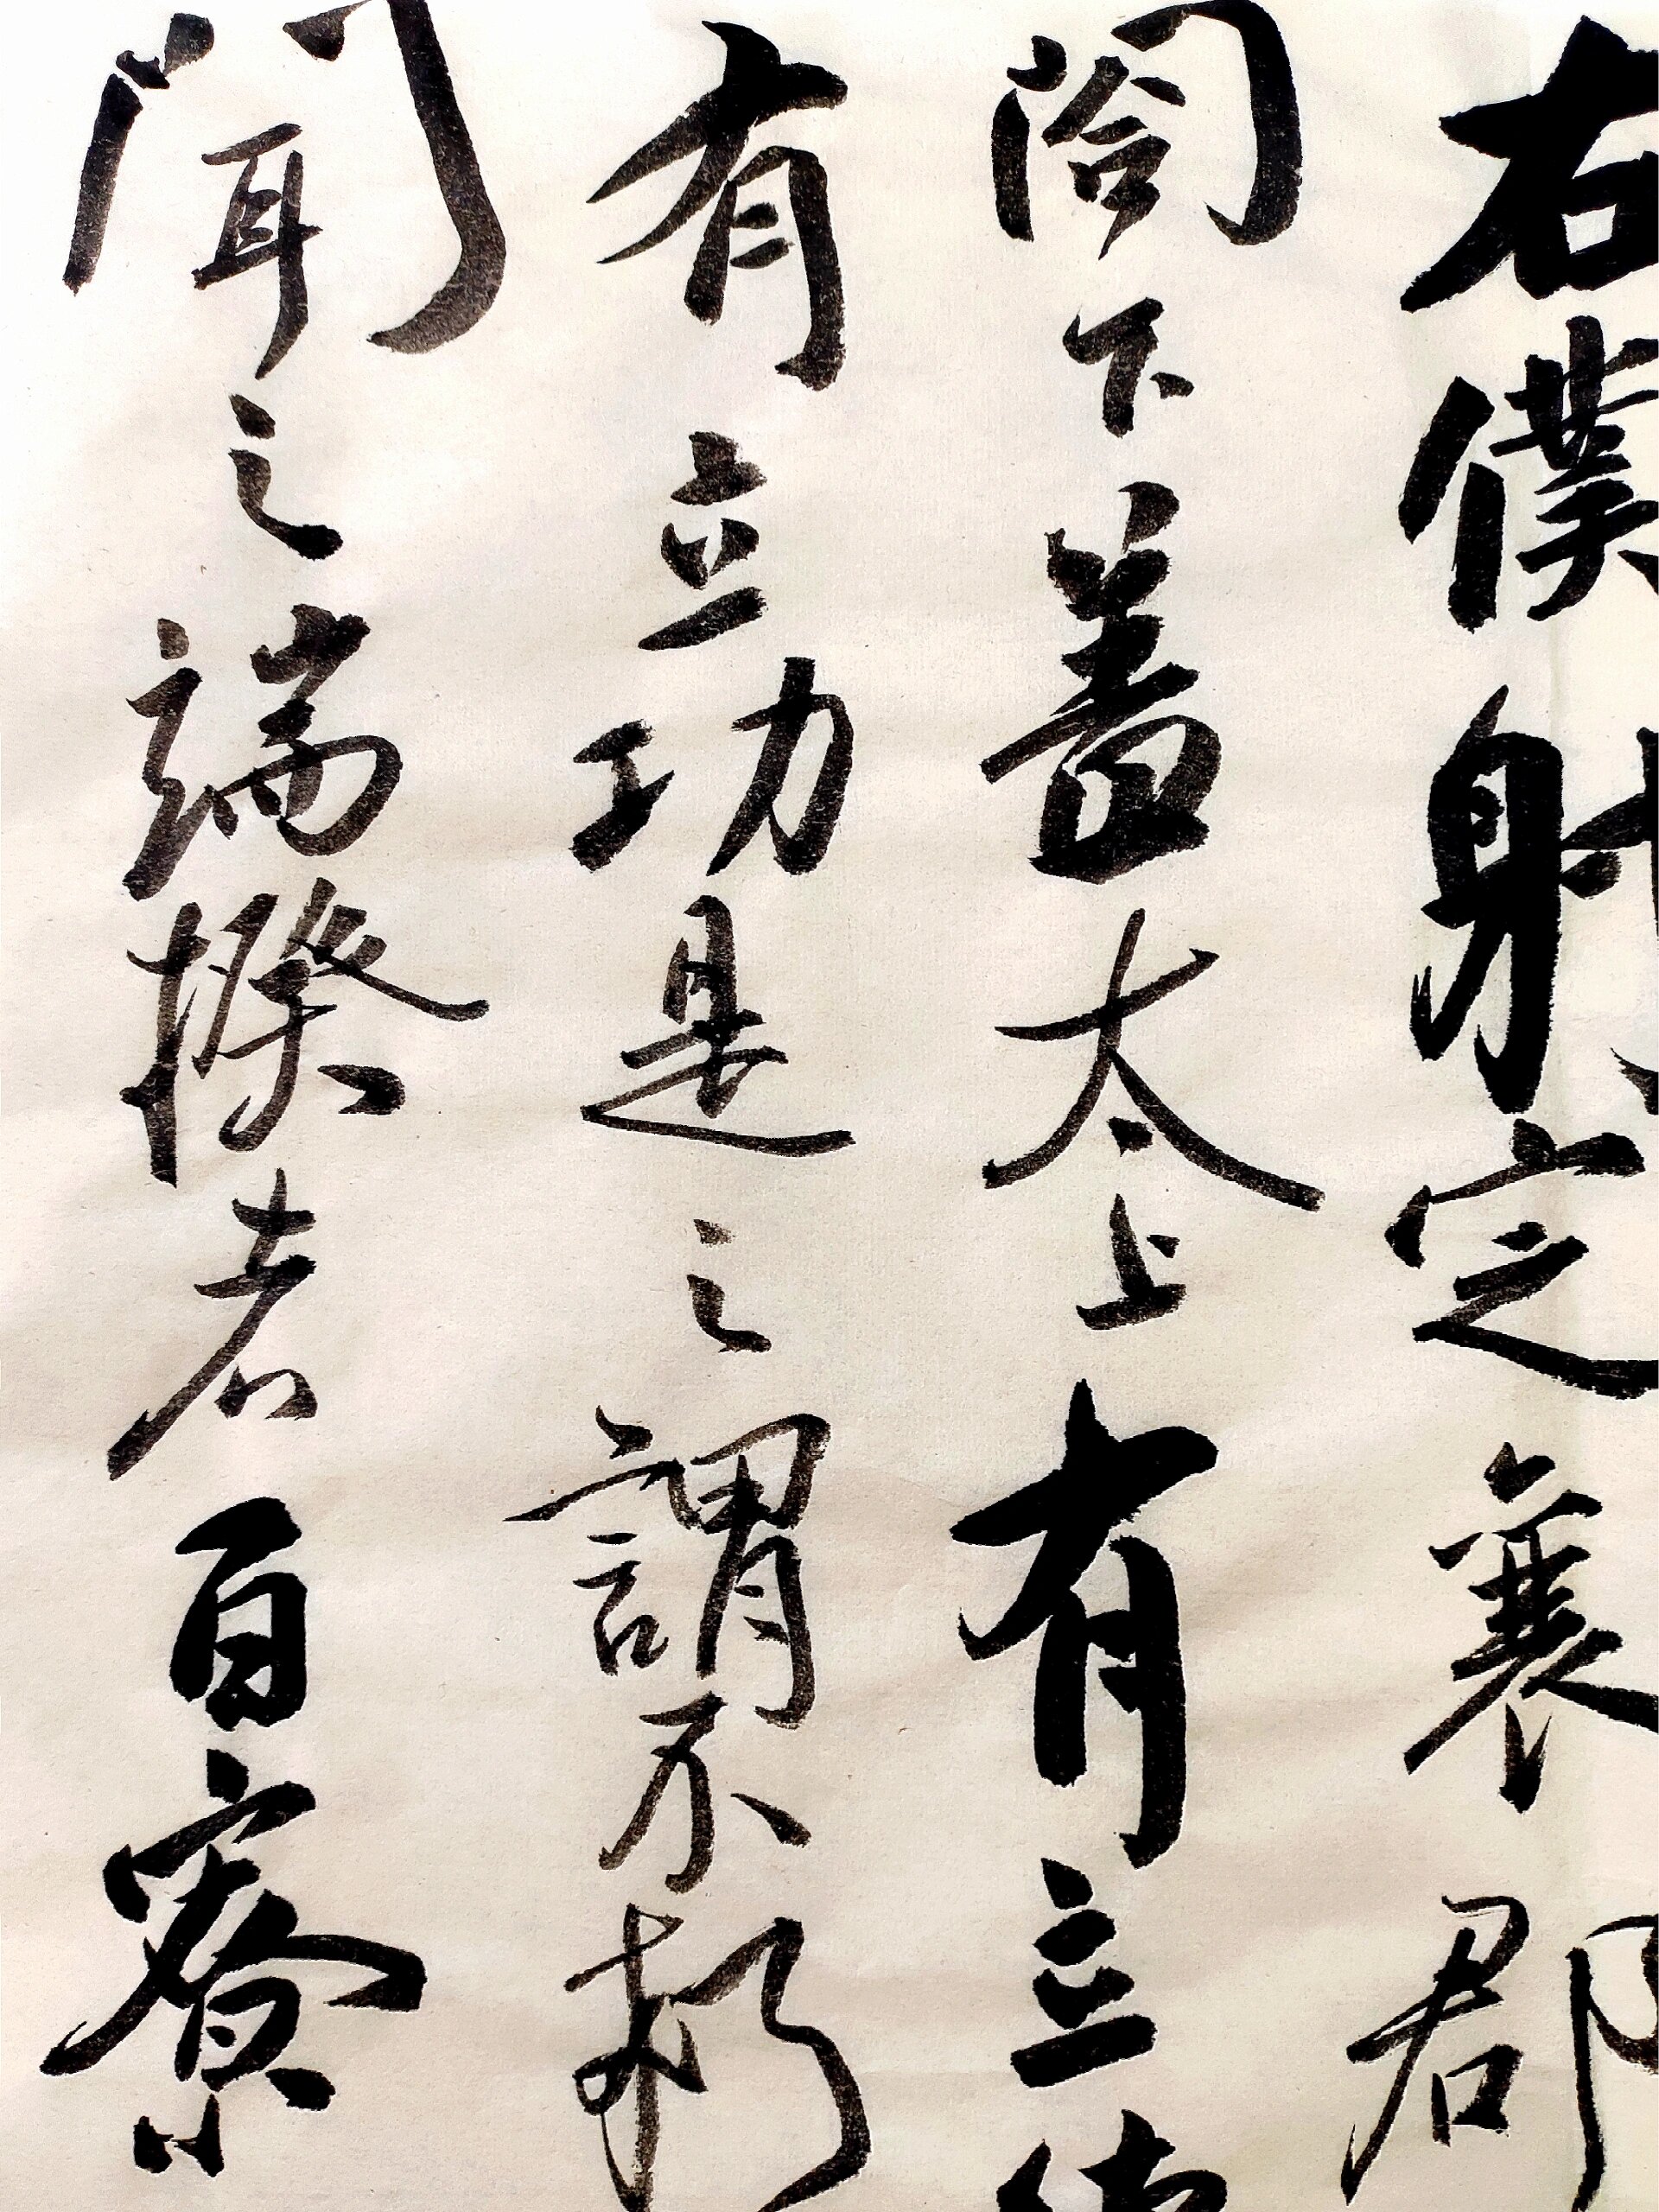 右僕射定襄郡
閤下蓋太上有立德
有立功是之謂不朽
聞之端揆者百寮